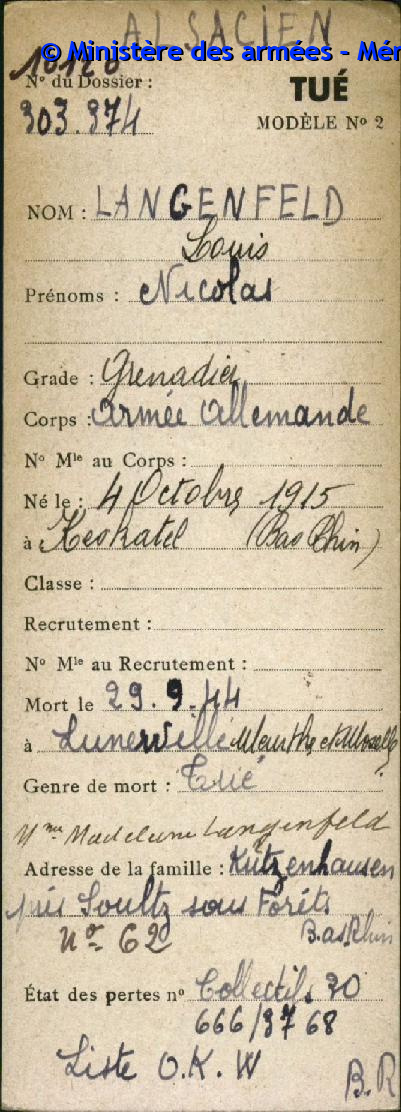 ALSACIEN
© Ministère des armées - Mém
10120
N° du Dossier :
303.374
TUÉ
MODÈLE N° 2
NOM : LANGENFELD
Louis
Prénoms : Nicolas
Grade : Grenadier
Corps : Armée Allemande
N° Mle au Corps :
Né le : 4 Octobre 1915
à Keskatel (Bas Rhin)
Classe :
Recrutement :
N° Mle au Recrutement :
Mort le 29.9.44
à Lunerville Meurthe et Moselle
Genre de mort : Tué
Mme Madeleine Langenfeld
Adresse de la famille : Kutzenhausen
près Soultz sous Forêts
No 62 Bas Rhin
État des pertes n° Collectifs 30
666/3768
Liste O.K.W
B.R